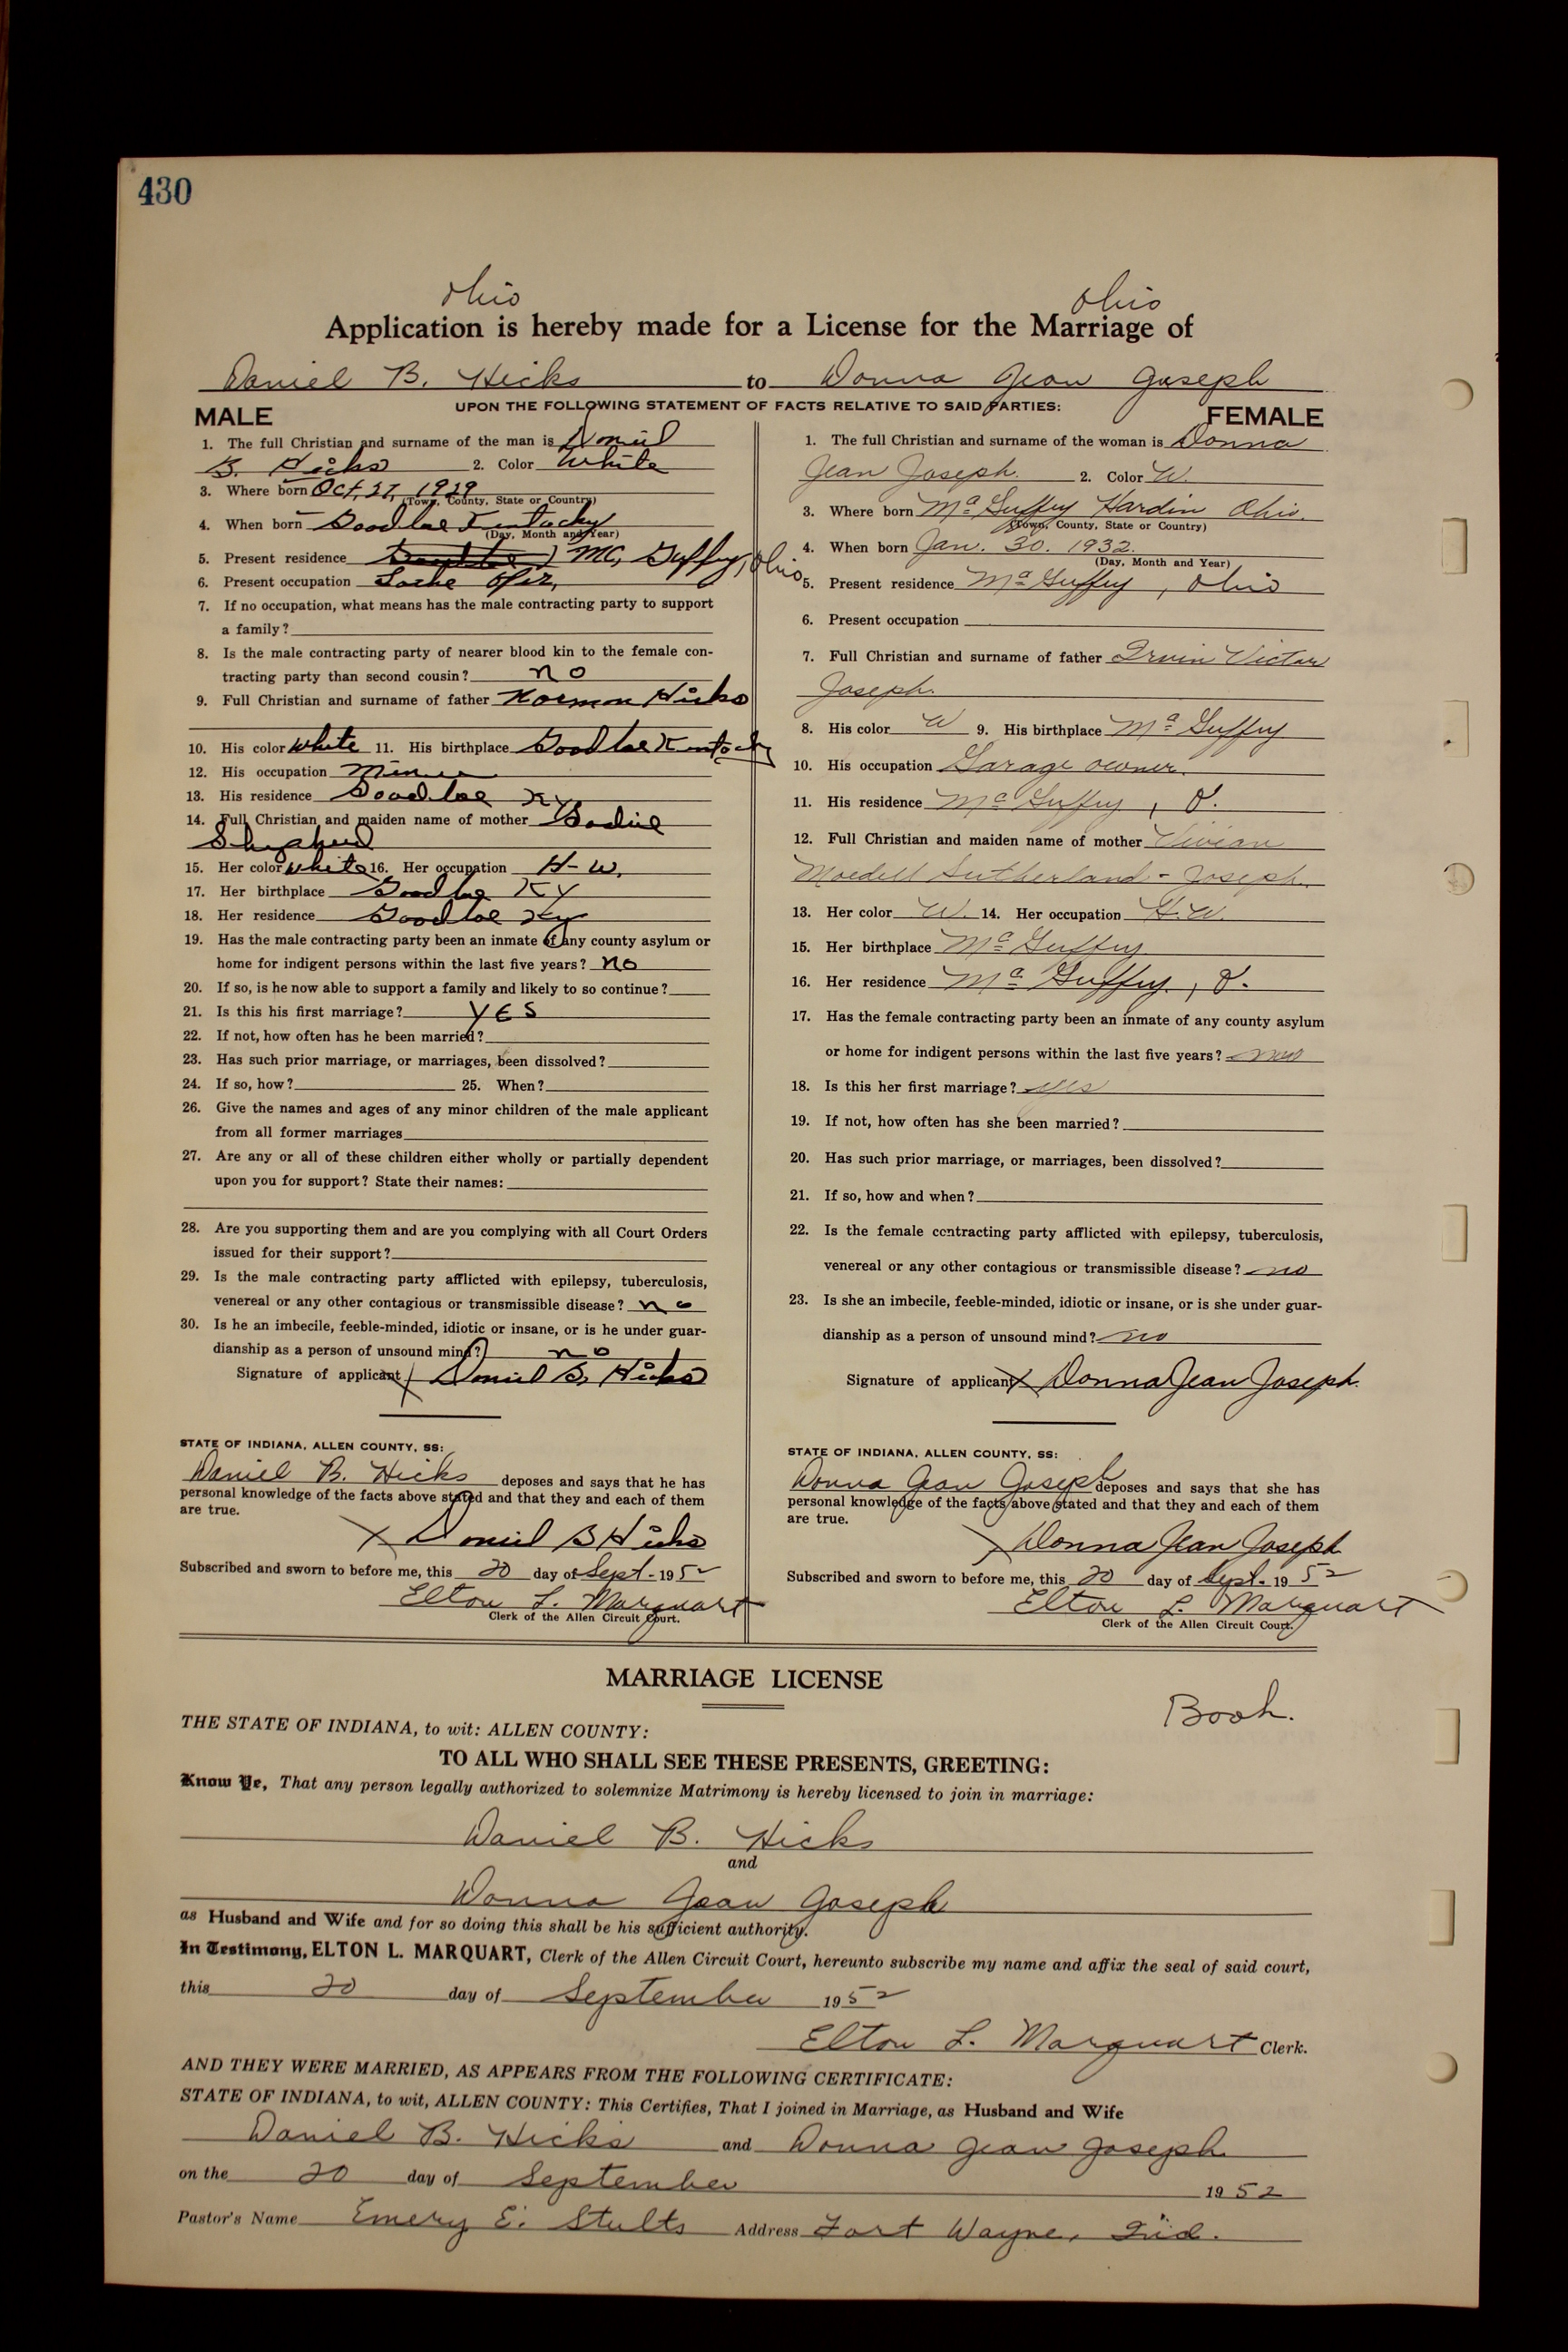 430
Ohio Ohio
Application is hereby made for a License for the Marriage of
Daniel B. Hicks to Donna Jean Joseph
UPON THE FOLLOWING STATEMENT OF FACTS RELATIVE TO SAID PARTIES:
MALE
1. The full Christian and surname of the man is Daniel
B. Hicks 2. Color White
3. Where born Oct, 27, 1929
(Town, County, State or Country)
4. When born Goodloe Kentocky
(Day, Month and Year)
5. Present residence Goodloe Mc, Guffey, Ohio
6. Present occupation Lathe Opr,
7. If no occupation, what means has the male contracting party to support
a family?
8. Is the male contracting party of nearer blood kin to the female con-
tracting party than second cousin? no
9. Full Christian and surname of father Norman Hicks
10. His color white 11. His birthplace Goodloe Kentocky
12. His occupation Miner
13. His residence Goodloe Ky
14. Full Christian and maiden name of mother
Shepherd
15. Her color white 16. Her occupation H-W.
17. Her birthplace Goodloe KY
18. Her residence Goodloe Ky
19. Has the male contracting party been an inmate of any county asylum or
home for indigent persons within the last five years? no
20. If so, is he now able to support a family and likely to so continue?
21. Is this his first marriage? YES
22. If not, how often has he been married?
23. Has such prior marriage, or marriages, been dissolved?
24. If so, how? 25. When?
26. Give the names and ages of any minor children of the male applicant
from all former marriages
27. Are any or all of these children either wholly or partially dependent
upon you for support? State their names:
28. Are you supporting them and are you complying with all Court Orders
issued for their support?
29. Is the male contracting party afflicted with epilepsy, tuberculosis,
venereal or any other contagious or transmissible disease? no
30. Is he an imbecile, feeble-minded, idiotic or insane, or is he under guar-
dianship as a person of unsound mind? no
Signature of applicant X Daniel B, Hicks
STATE OF INDIANA, ALLEN COUNTY, SS:
Daniel B. Hicks deposes and says that he has
personal knowledge of the facts above stated and that they and each of them
are true.
X Daniel B Hicks
Subscribed and sworn to before me, this 20 day of Sept. 1952
Elton L. Marquart
Clerk of the Allen Circuit Court.
FEMALE
1. The full Christian and surname of the woman is Donna
Jean Joseph. 2. Color W.
3. Where born Mc Guffey Hardin Ohio.
(Town, County, State or Country)
4. When born Jan. 30. 1932.
(Day, Month and Year)
5. Present residence Mc Guffey, Ohio
6. Present occupation
7. Full Christian and surname of father Irvin Victor
Joseph.
8. His color W 9. His birthplace Mc Guffey
10. His occupation Garage owner.
11. His residence Mc Guffey, O.
12. Full Christian and maiden name of mother Vivian
Moedell Sutherland - Joseph.
13. Her color W. 14. Her occupation H.W.
15. Her birthplace Mc Guffey
16. Her residence Mc Guffey, O.
17. Has the female contracting party been an inmate of any county asylum
or home for indigent persons within the last five years? no
18. Is this her first marriage? yes
19. If not, how often has she been married?
20. Has such prior marriage, or marriages, been dissolved?
21. If so, how and when?
22. Is the female contracting party afflicted with epilepsy, tuberculosis,
venereal or any other contagious or transmissible disease? no
23. Is she an imbecile, feeble-minded, idiotic or insane, or is she under guar-
dianship as a person of unsound mind? no
Signature of applicant X Donna Jean Joseph.
STATE OF INDIANA, ALLEN COUNTY, SS:
Donna Jean Joseph deposes and says that she has
personal knowledge of the facts above stated and that they and each of them
are true.
X Donna Jean Joseph
Subscribed and sworn to before me, this 20 day of Sept. 1952
Elton L. Marquart
Clerk of the Allen Circuit Court.
MARRIAGE LICENSE
Booh.
THE STATE OF INDIANA, to wit: ALLEN COUNTY:
TO ALL WHO SHALL SEE THESE PRESENTS, GREETING:
Know Ye, That any person legally authorized to solemnize Matrimony is hereby licensed to join in marriage:
Daniel B. Hicks
and
Donna Jean Joseph
as Husband and Wife and for so doing this shall be his sufficient authority.
In Testimony, ELTON L. MARQUART, Clerk of the Allen Circuit Court, hereunto subscribe my name and affix the seal of said court,
this 20 day of September 1952
Elton L. Marquart Clerk.
AND THEY WERE MARRIED, AS APPEARS FROM THE FOLLOWING CERTIFICATE:
STATE OF INDIANA, to wit, ALLEN COUNTY: This Certifies, That I joined in Marriage, as Husband and Wife
Daniel B. Hicks and Donna Jean Joseph
on the 20 day of September 1952
Pastor's Name Emery E. Stults Address Fort Wayne, Ind.